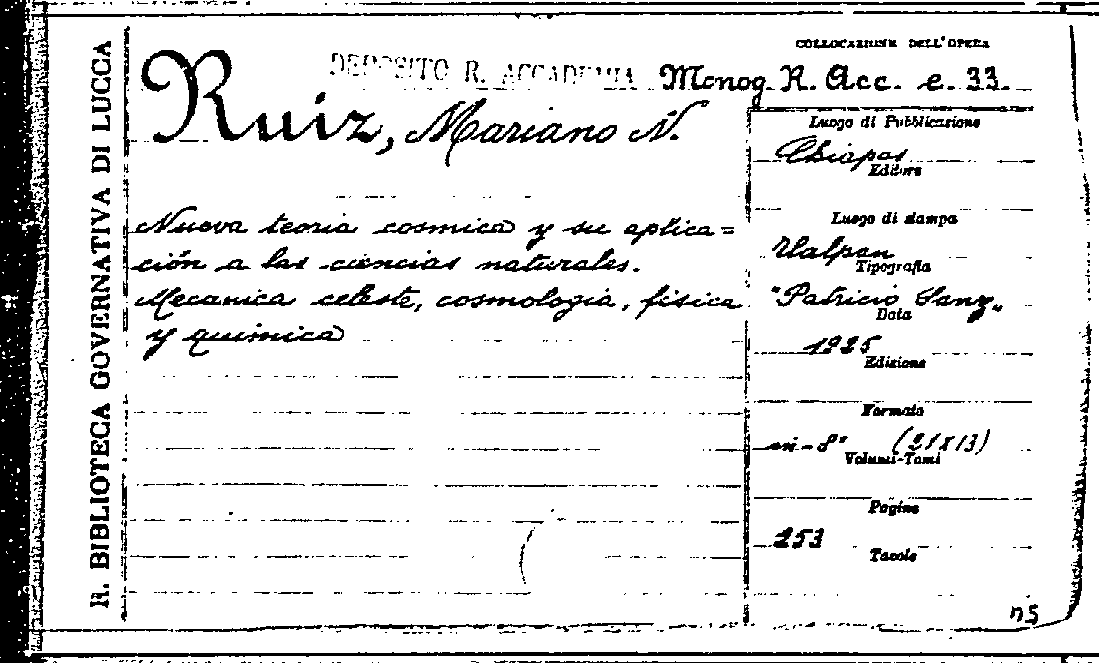 R. BIBLIOTECA GOVERNATIVA DI LUCCA
DEPOSITO R. ACCADEMIA
COLLOCAZIONE DELL'OPERA
Monog. R. Acc. e. 33.
Ruiz, Mariano N.
Nueva teoria cosmica y su aplica=
ción a las ciencias naturales.
Mecanica celeste, cosmologia, fisica
y quimica
Luogo di Pubblicazione
Chiapas
Editore
Luogo di stampa
Tlalpan
Tipografia
"Patricio Sanz"
Data
1925
Edizione
Formato
in-8° (21x13)
Volumi-Tomi
Pagine
253
Tavole